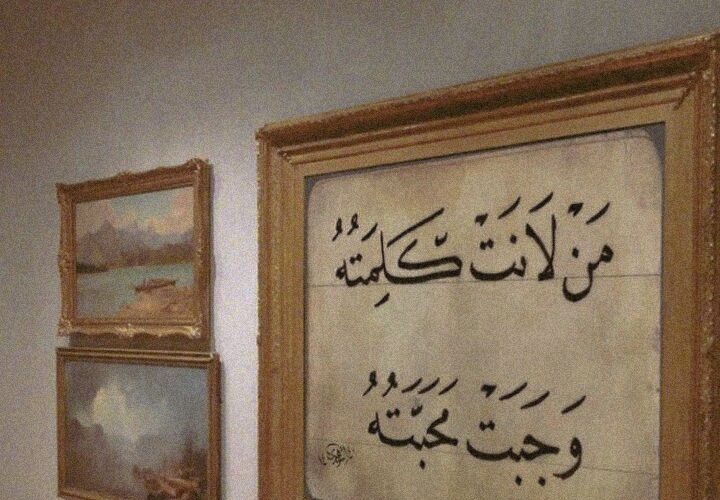 مَنْ لَانَتْ كَلِمَتُهُ
وَجَبَتْ مَحَبَّتُهُ